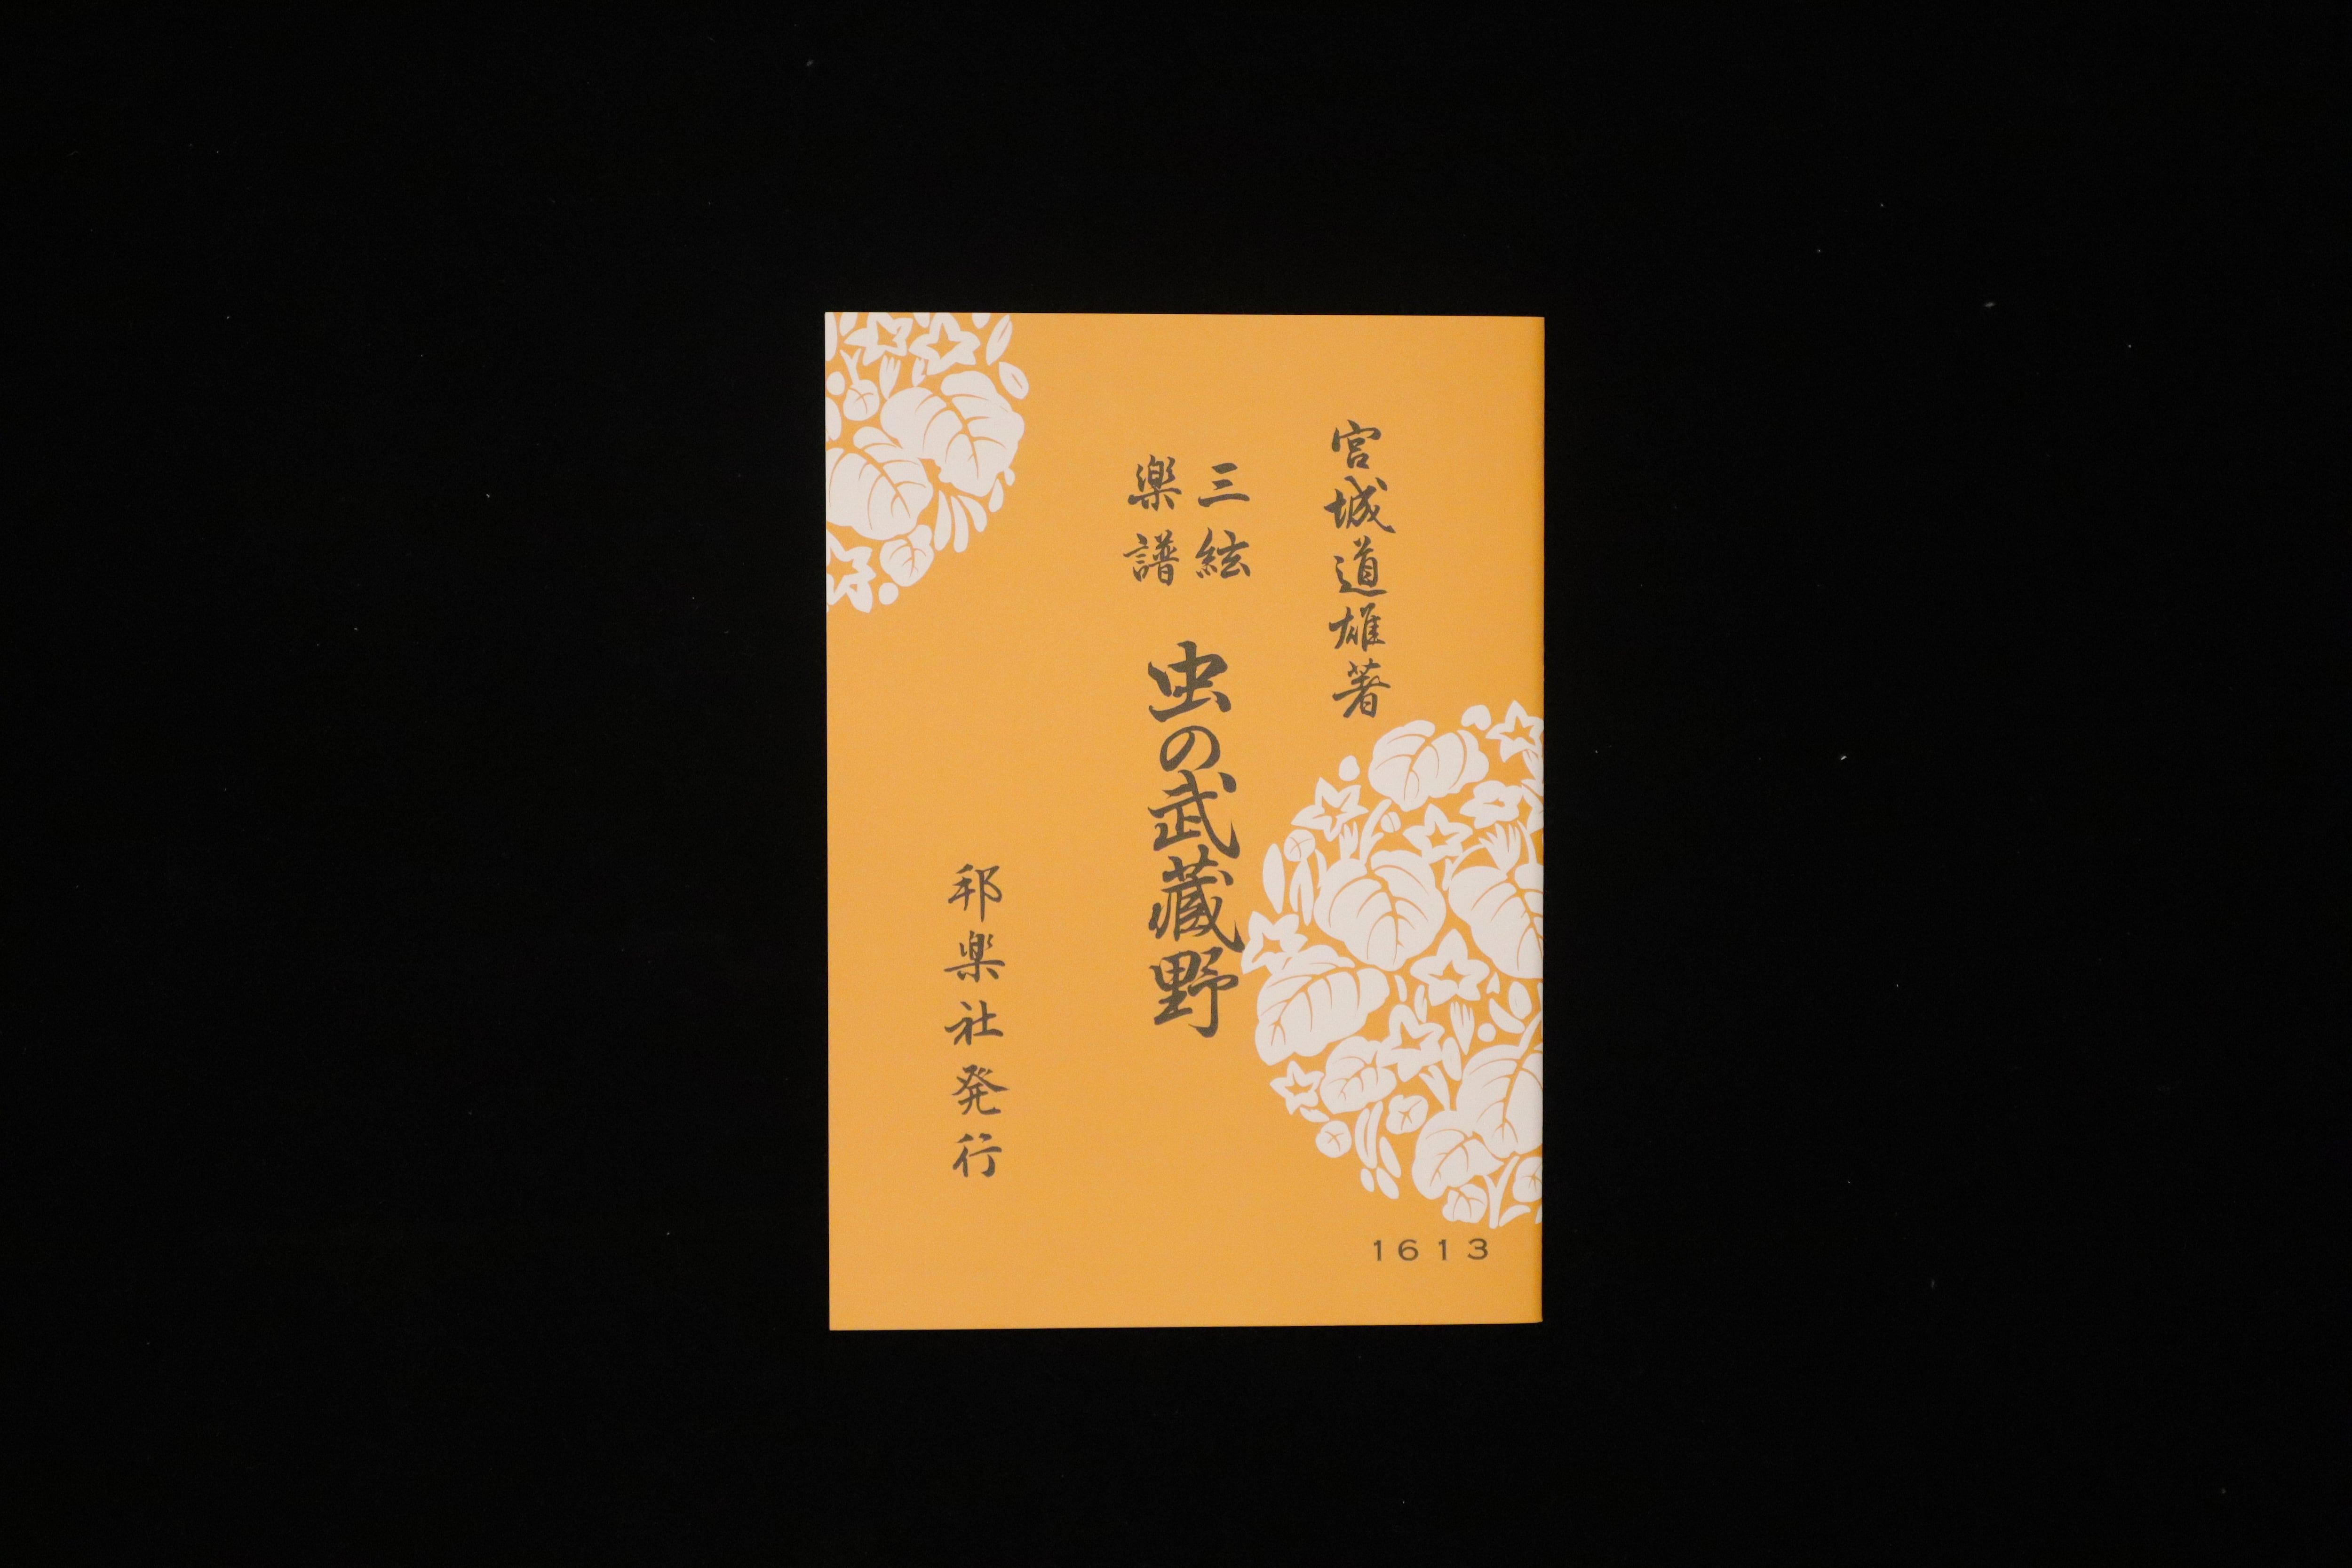 宮城道雄著
三絃
楽譜
虫の武蔵野
邦楽社発行
1613